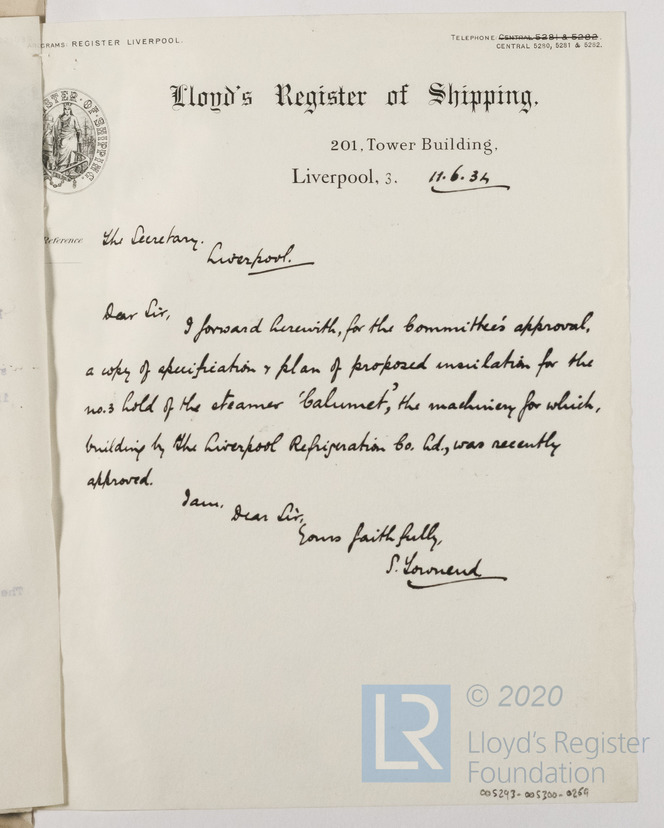 GRAMS: REGISTER LIVERPOOL.
TELEPHONE CENTRAL 5281 & 5282.
CENTRAL 5280, 5281 & 5282.
Lloyd's Register of Shipping,
201, Tower Building,
Liverpool, 3. 11.6.34
STER·OF·SHIPPING.
Reference
The Secretary.
Liverpool.
Dear Sir,
I forward herewith, for the Committee's approval,
a copy of specification & plan of proposed insulation for the
no.3 hold of the steamer 'Calumet', the machinery for which,
building by the Liverpool Refrigeration Co. Ld., was recently
approved.
I am,
Dear Sir,
Yours faithfully,
S. Townend
LR
© 2020
Lloyd's Register
Foundation
005293-005300-0269